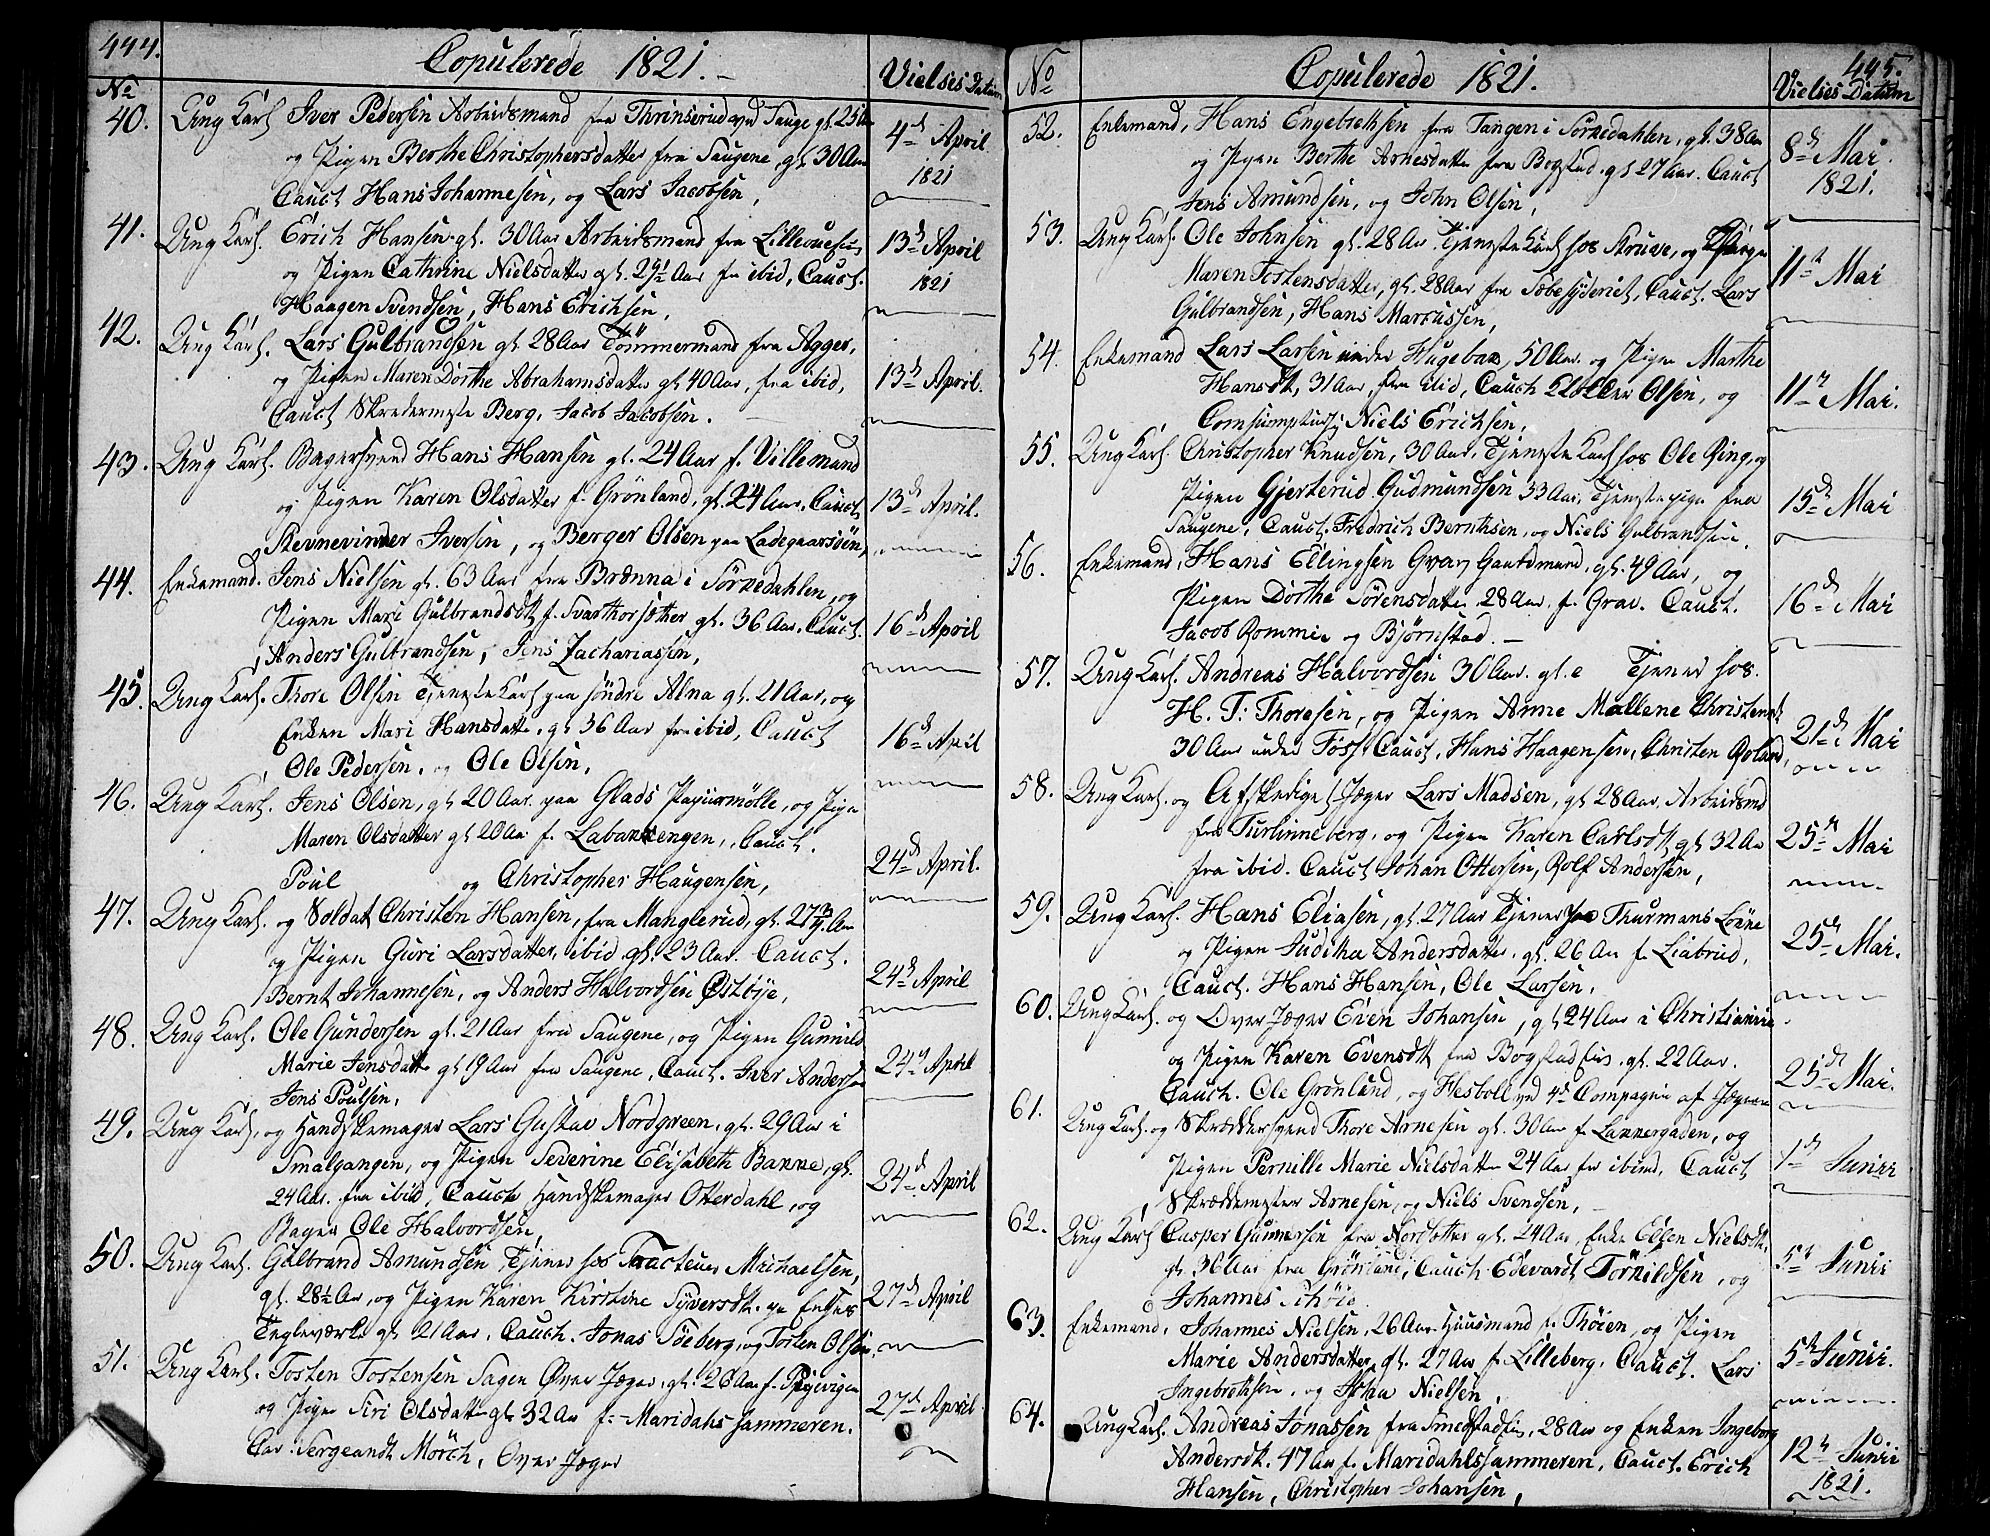 444.
Copulerede 1821.
No Vielses Datum
40. Ung Karl Iver Pedersen Arbeidsmand fra Thrinserud ved Sauge gl. 25 Aar
og Pigen Berthe Christophersdatter fra Saugene, gl. 30 Aar
Cauct Hans Johannesen, og Lars Jacobsen,
4de April
1821
41. Ung Karl. Erich Hansen gl. 30 Aar Arbeidsmand fra
og Pigen Cathrine Nielsdatter gl. 29½ Aar fra ibid, Cauct.
Haagen Svendsen, Hans Erichsen,
13de April
1821
42. Ung Karl. Lars Gulbrandsen gl 28 Aar Tömmermand fra Agger,
og Pigen Maren Dorthe Abrahamsdatter gl 40 Aar, fra ibid,
Cauct Skredermester Berg, Jacob Jacobsen.
13de April.
43. Ung Karl. Bagersvend Hans Hansen gl. 24 Aar f. Villemand
og Pigen Karen Olsdatter f. Grönland, gl. 24 Aar. Cauct.
Stevnevinder Iversen, og Berger Olsen paa Ladegaardsöen,
13de April.
44. Enkemand. Jens Nielsen gl. 63 Aar fra Brænna i Sörkedahlen, og
Pigen Mari Gulbrandsdt f. Svarthorsæther gl. 36 Aar. Cauct.
Anders Gulbrandsen, Jens Zachariassen,
16de April
45. Ung Karl. Thore Olsen Tjeneste Karl paa söndre Alna gl. 21 Aar, og
Enken Mari Hansdatter, gl 36 Aar fra ibid, Cauct
Ole Pedersen, og Ole Olsen,
16de April
46. Ung Karl. Jens Olsen, gl 20 Aar. paa Glads Papiirmölle, og Pige
Maren Olsdatter gl 20 Aar f. Labansengen, Cauct.
Poul og Christopher Haugensen,
24de April.
47. Ung Karl. og Soldat Christen Hansen, fra Manglerud, gl. 27 Aar
og Pigen Guri Larsdatter, ibid gl. 23 Aar. Cauct.
Bernt Johannesen, og Anders Halvordsen Östbye,
24de April
48. Ung Karl. Ole Gundersen gl. 21 Aar fra Saugene, og Pigen Gunnild
Marie Jensdatter gl 19 Aar fra Saugene, Cauct. Iver Andersen
Jens Poulsen,
24de April
49. Ung Karl, og Handskemager Lars Gustav Nordgreen, gl. 29 Aar i
Smalgangen, og Pigen Severine Elisabeth Banne, gl.
24 Aar. fra ibid, Cauct. Handskemager Otterdahl, og
Bager Ole Halvordsen,
24de April
50. Ung Karl. Gulbrand Amundsen Tjener hos Tracteur Michaelsen,
gl. 28½ Aar, og Pigen Karen Kirstine Syversdt. paa Enkes
Tegleværk gl 21 Aar, Cauct. Jonas Söeberg, og Torsten Olsen,
27de April
51. Ung Karl. Tosten Tostensen Sagen Over Jæger, gl. 26 Aar f. Pipervigen
og Pige Siri Olsdatter gl 32 Aar f. Maridahs hammeren.
Cav: Sergeandt Mörch, Over Jæger
27de April.
445.
No Copulerede 1821.
Vielses Datum
52. Enkemand, Hans Engebretsen fra Tangen i Sörkedahlen, gl. 38 Aar
og Pigen Berthe Arnesdatter fra Bogstad. gl 27 Aar. Cauct
Jens Amundsen, og John Olsen,
8de Mai.
1821.
53. Ung Karl. Ole Johnsen gl. 28 Aar. Tjeneste Karl hos Struve, og Pigen
Maren Tostensdatter, gl. 28 Aar fra Sæbesyderiet, Cauct. Lars
Gulbrandsen, Hans Marcussen,
11te Mai
54. Enkemand Lars Larsen under Hugebak, 50 Aar. og Pigen Marthe
Hansdt, 31 Aar, fra ibid, Cauct Olsen, og
Niels Erichsen,
11te Mai.
55. Ung Karl. Christopher Knudsen, 30 Aar. Tjeneste Karl hos Ole Ring, og
Pigen Gjerterud Gudmundsen 33 Aar, Tjenestepige fra
Saugene, Cauct. Fredrich Bernthsen, og Niels Gulbrandsen.
15de Mai
56. Enkemand, Hans Ellingsen Gaardmand, gl. 49 Aar, og
Pigen Dorthe Sörensdatter 28 Aar. f. Grav. Cauct.
Jacob Rommie og Bjørnstad.
16de Mai
57. Ung Karl. Andreas Halvordsen 30 Aar. gl. Tjener hos.
H. T: Thoresen, og Pigen Anne Mallene Christensdt
30 Aar under Tofst, Cauct, Hans Haagensen, Christen Roland,
21de Mai
58. Ung Karl. og Afskediget Jæger Lars Madsen, gl 28 Aar, Arbeidsmd
fra Turlinneberg, og Pigen Karen Carlsdt gl 32 Aar
fra ibid. Cauct Johan Ottersen, Rolf Andersen,
25de Mai
59. Ung Karl. Hans Eliasen, gl. 27 Aar Tjener paa Thurmans Lökke
og Pigen Juditha Andersdatter, gl. 26 Aar f. Liabrud,
Cauct. Hans Hansen, Ole Larsen,
25de Mai.
60. Ung Karl. og Over Jæger Even Johansen, gl 24 Aar i Christiania
og Pigen Karen Evensdt fra Bogstad gl. 22 Aar.
Cauct. Ole Grönlund, og Hesboll ved 4de Compagnie af Jægerne
25de Mai.
61. Ung Karl. og Skræddersvend Thore Arnesen gl. 30 Aar f. Lakkergaden, og
Pigen Pernille Marie Nielsdatter 24 Aar fra ibind, Cauct
Skræddermester Arnesen, og Niels Svendsen,
1de Junii
62. Ung Karl Casper Gunnersen fra gl. 24 Aar, Enke Ellen Nielsdt.
gl. 36 Aar fra Grönland, Cauct. Edevardt Törkildsen, og
Johannes Schöie.
5te Junii
63. Enkemand, Johannes Nielsen, 26 Aar Huusmand f. Thöien, og Pigen
Marie Andersdatter, gl. 27 Aar f. Lilleberg, Cauct. Lars
Ingebretsen, og Johan Nielsen,
5te Junii.
64. Ung Karl. Andreas Jonassen fra Smedstad, 28 Aar og Enken Ingeborg
Andersdt. 47 Aar f. Maridahlshammeren, Cauct. Erich
Hansen, Christopher Johansen,
12te Junii
1821.